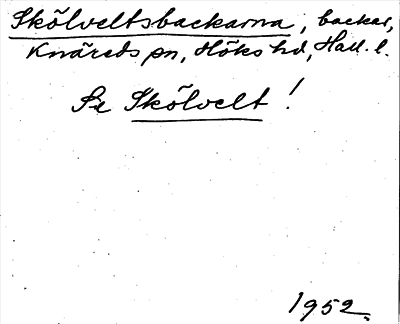 Skölveltsbackarna, backar,
Knäreds sn, Höks hd, Hall. l.
Se Skölvelt!
1952.